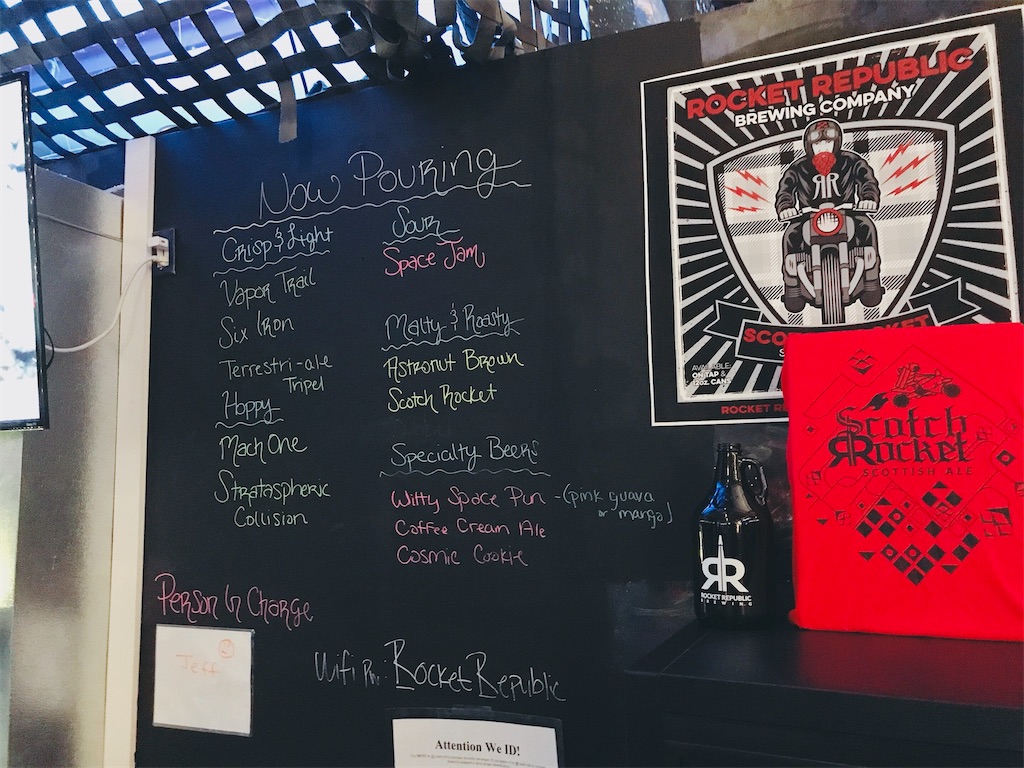 Now Pouring
Crisp & Light
Vapor Trail
Six Iron
Terrestri-ale
Tripel
Hoppy
Mach One
Strataspheric
Collision
Sour
Space Jam
Malty & Roasty
Astronut Brown
Scotch Rocket
Specialty Beers
Witty Space Pun - (pink guava
or mango)
Coffee Cream Ale
Cosmic Cookie
Person In Charge
Jeff
Wifi PW: Rocket Republic
Attention We ID!
ROCKET REPUBLIC
BREWING COMPANY
RR
AVAILABLE
ON TAP &
12oz. CANS
RR
ROCKET REPUBLIC
BREWING
Scotch
Rocket
SCOTTISH ALE